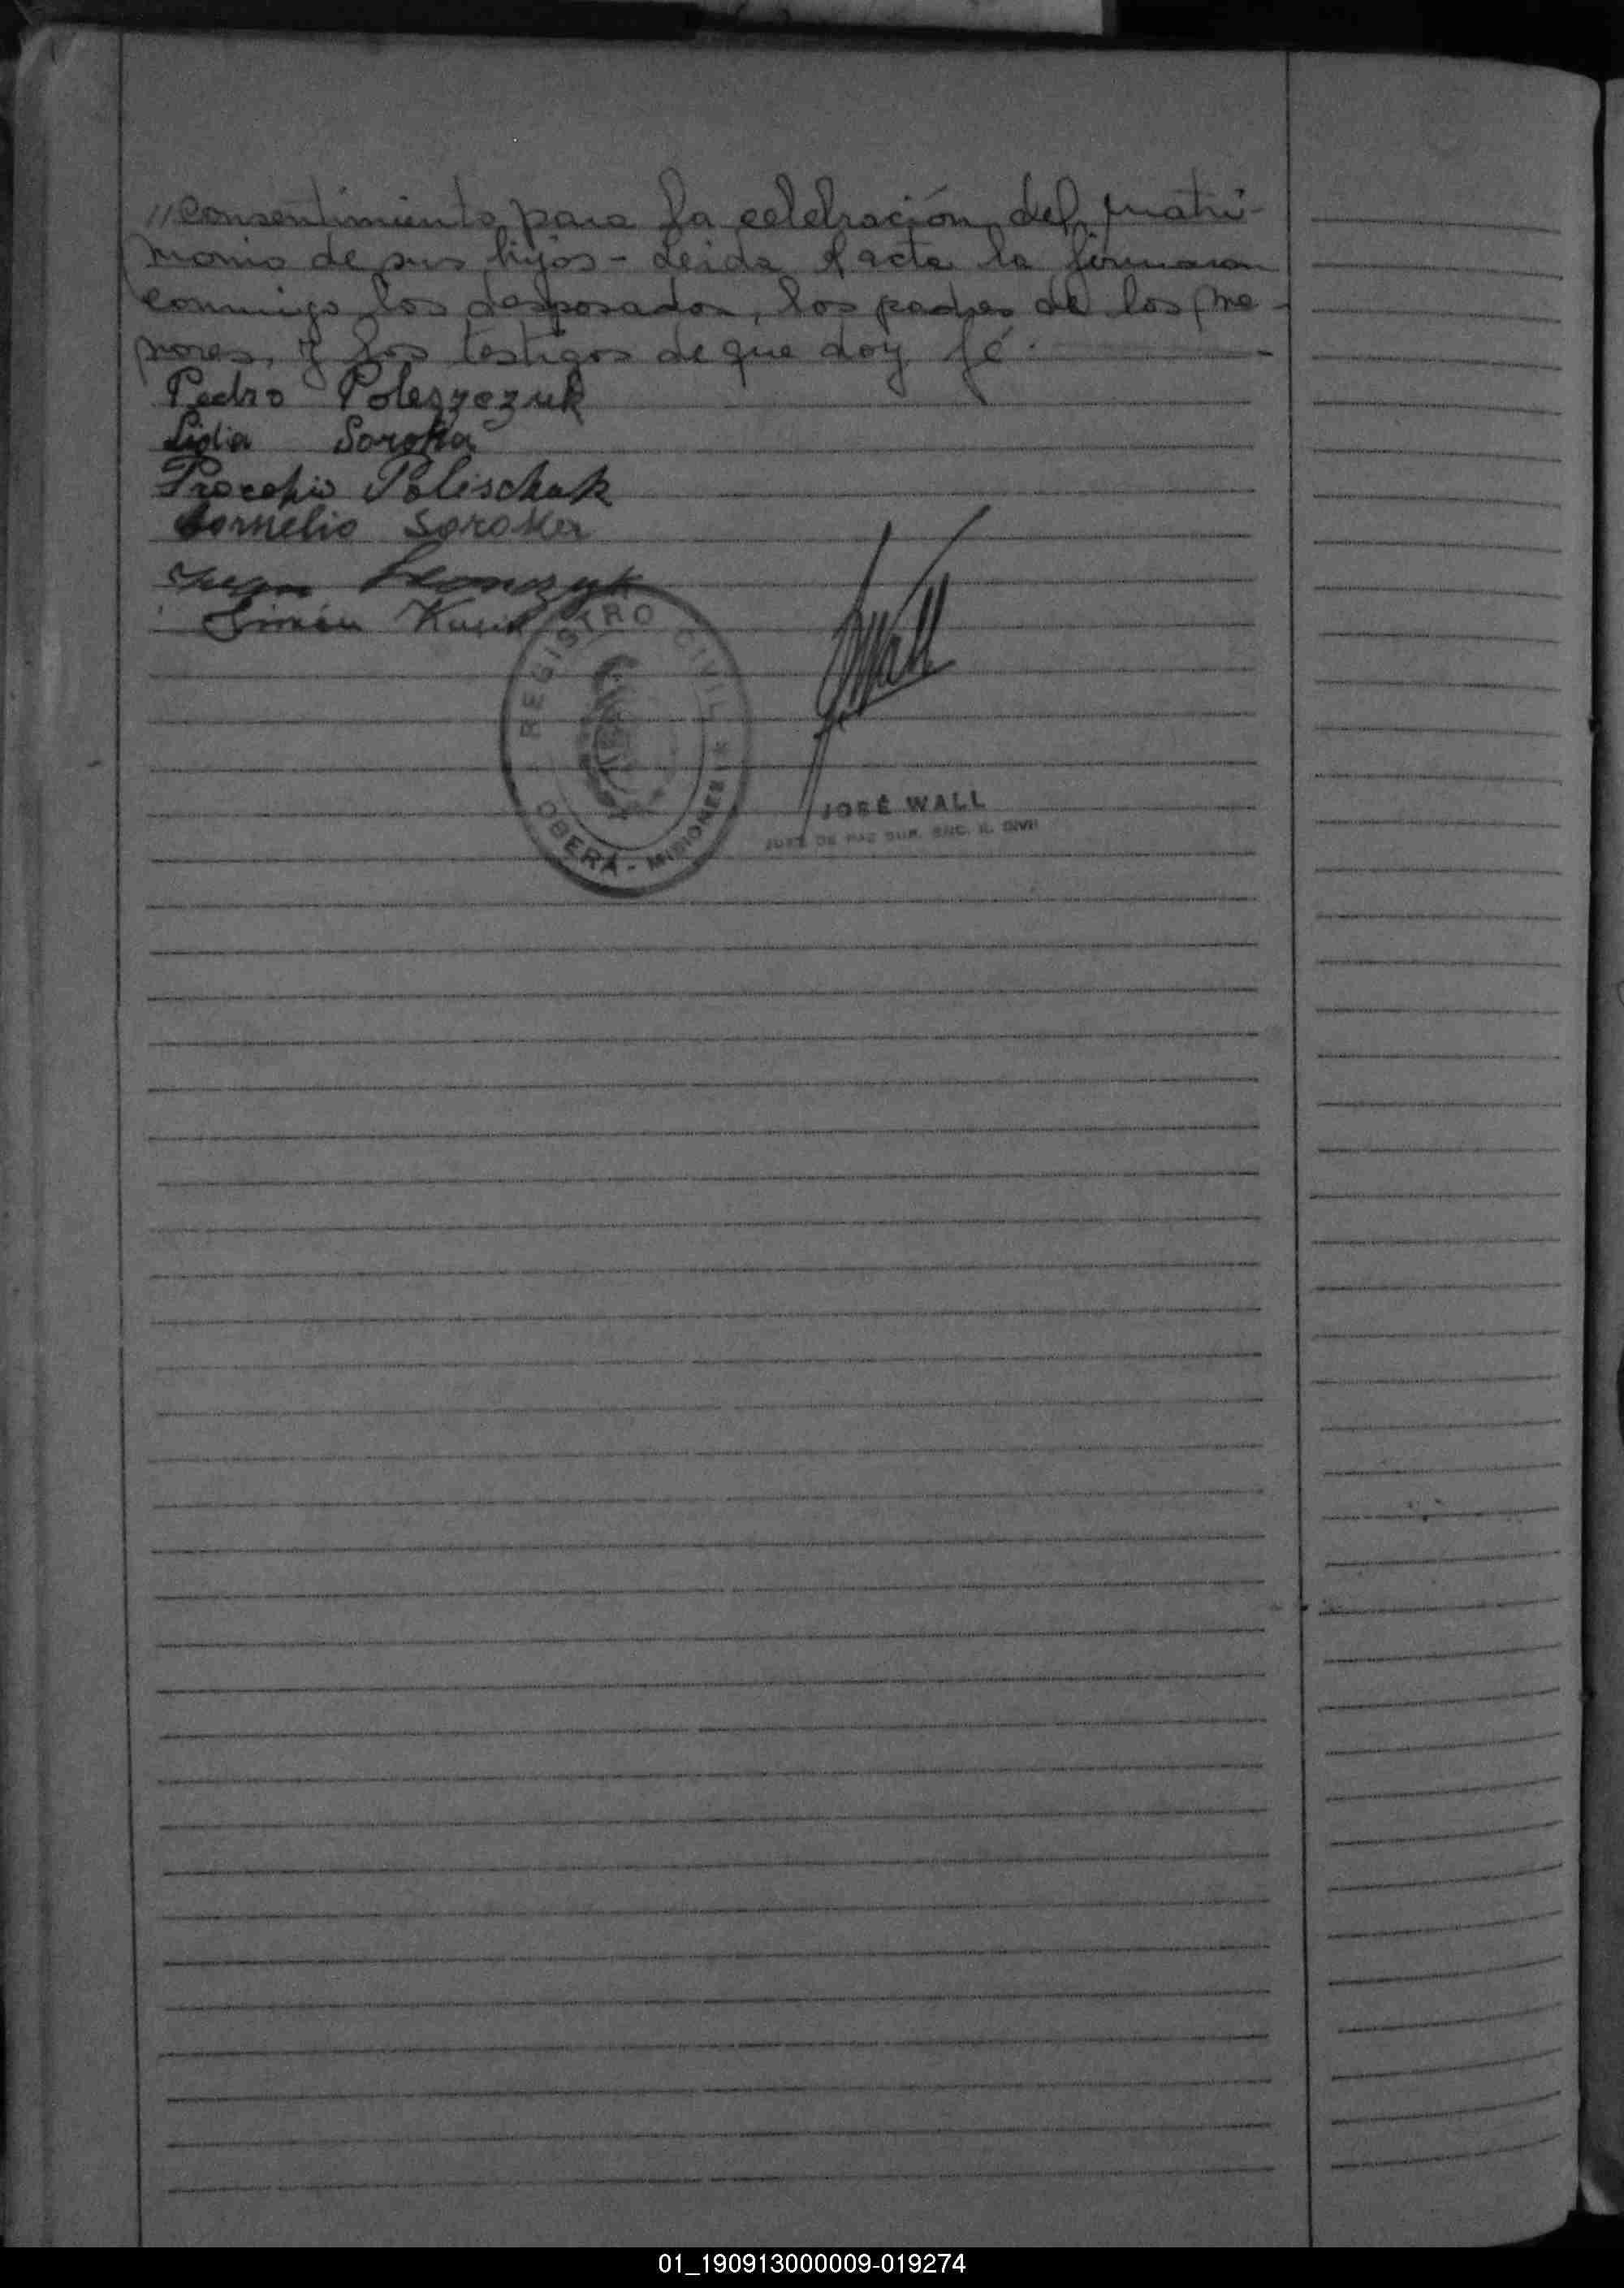 //Consentimiento para la celebración del matri-
monio de sus hijos - Leida el acta la firmaron
conmigo los desposados, los padres de los me-
nores, y los testigos de que doy fé.
Pedro Poleszczuk
Lidia Soroka
Procopio Polischuk
Cornelio Soroka
Simón
REGISTRO CIVIL
OBERÁ - MISIONES
JWall
JOSÉ WALL
JUEZ DE PAZ SUP. ENC. R. CIVIL
01_190913000009-019274